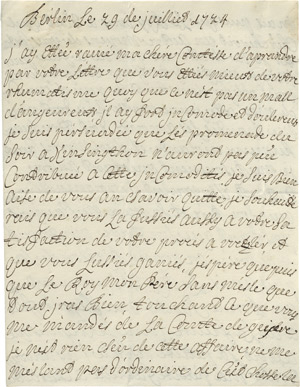 Berlin Le 29 de juilliet 1724
j'ay ettée ravie ma chere Contesse d'aprandre
par votre Lettre que vous ettés mieux de votre
rhumatisme quoy que ce n'est pas un mall
dangeureux il ay fort jncomode et douleureux
je suis persuadée que Les promenade du
soir a Kensingtion n'auront pas peu
Contribué a cette jncomoditës je suis bien
aise de vous an savoir quitte je souhaide
rais que vous La fussiés aussy a votre sa
tisfaction de votre procés a
que vous L'ussiés ganiés j'espère que puis
que Le Roy mon Père s'an mesle que
tout jras bien touchand ce que vous
me mandés de La Comte de
je n'est rien sceu de cette affaire ne me
mesland pas d'ordinaire de